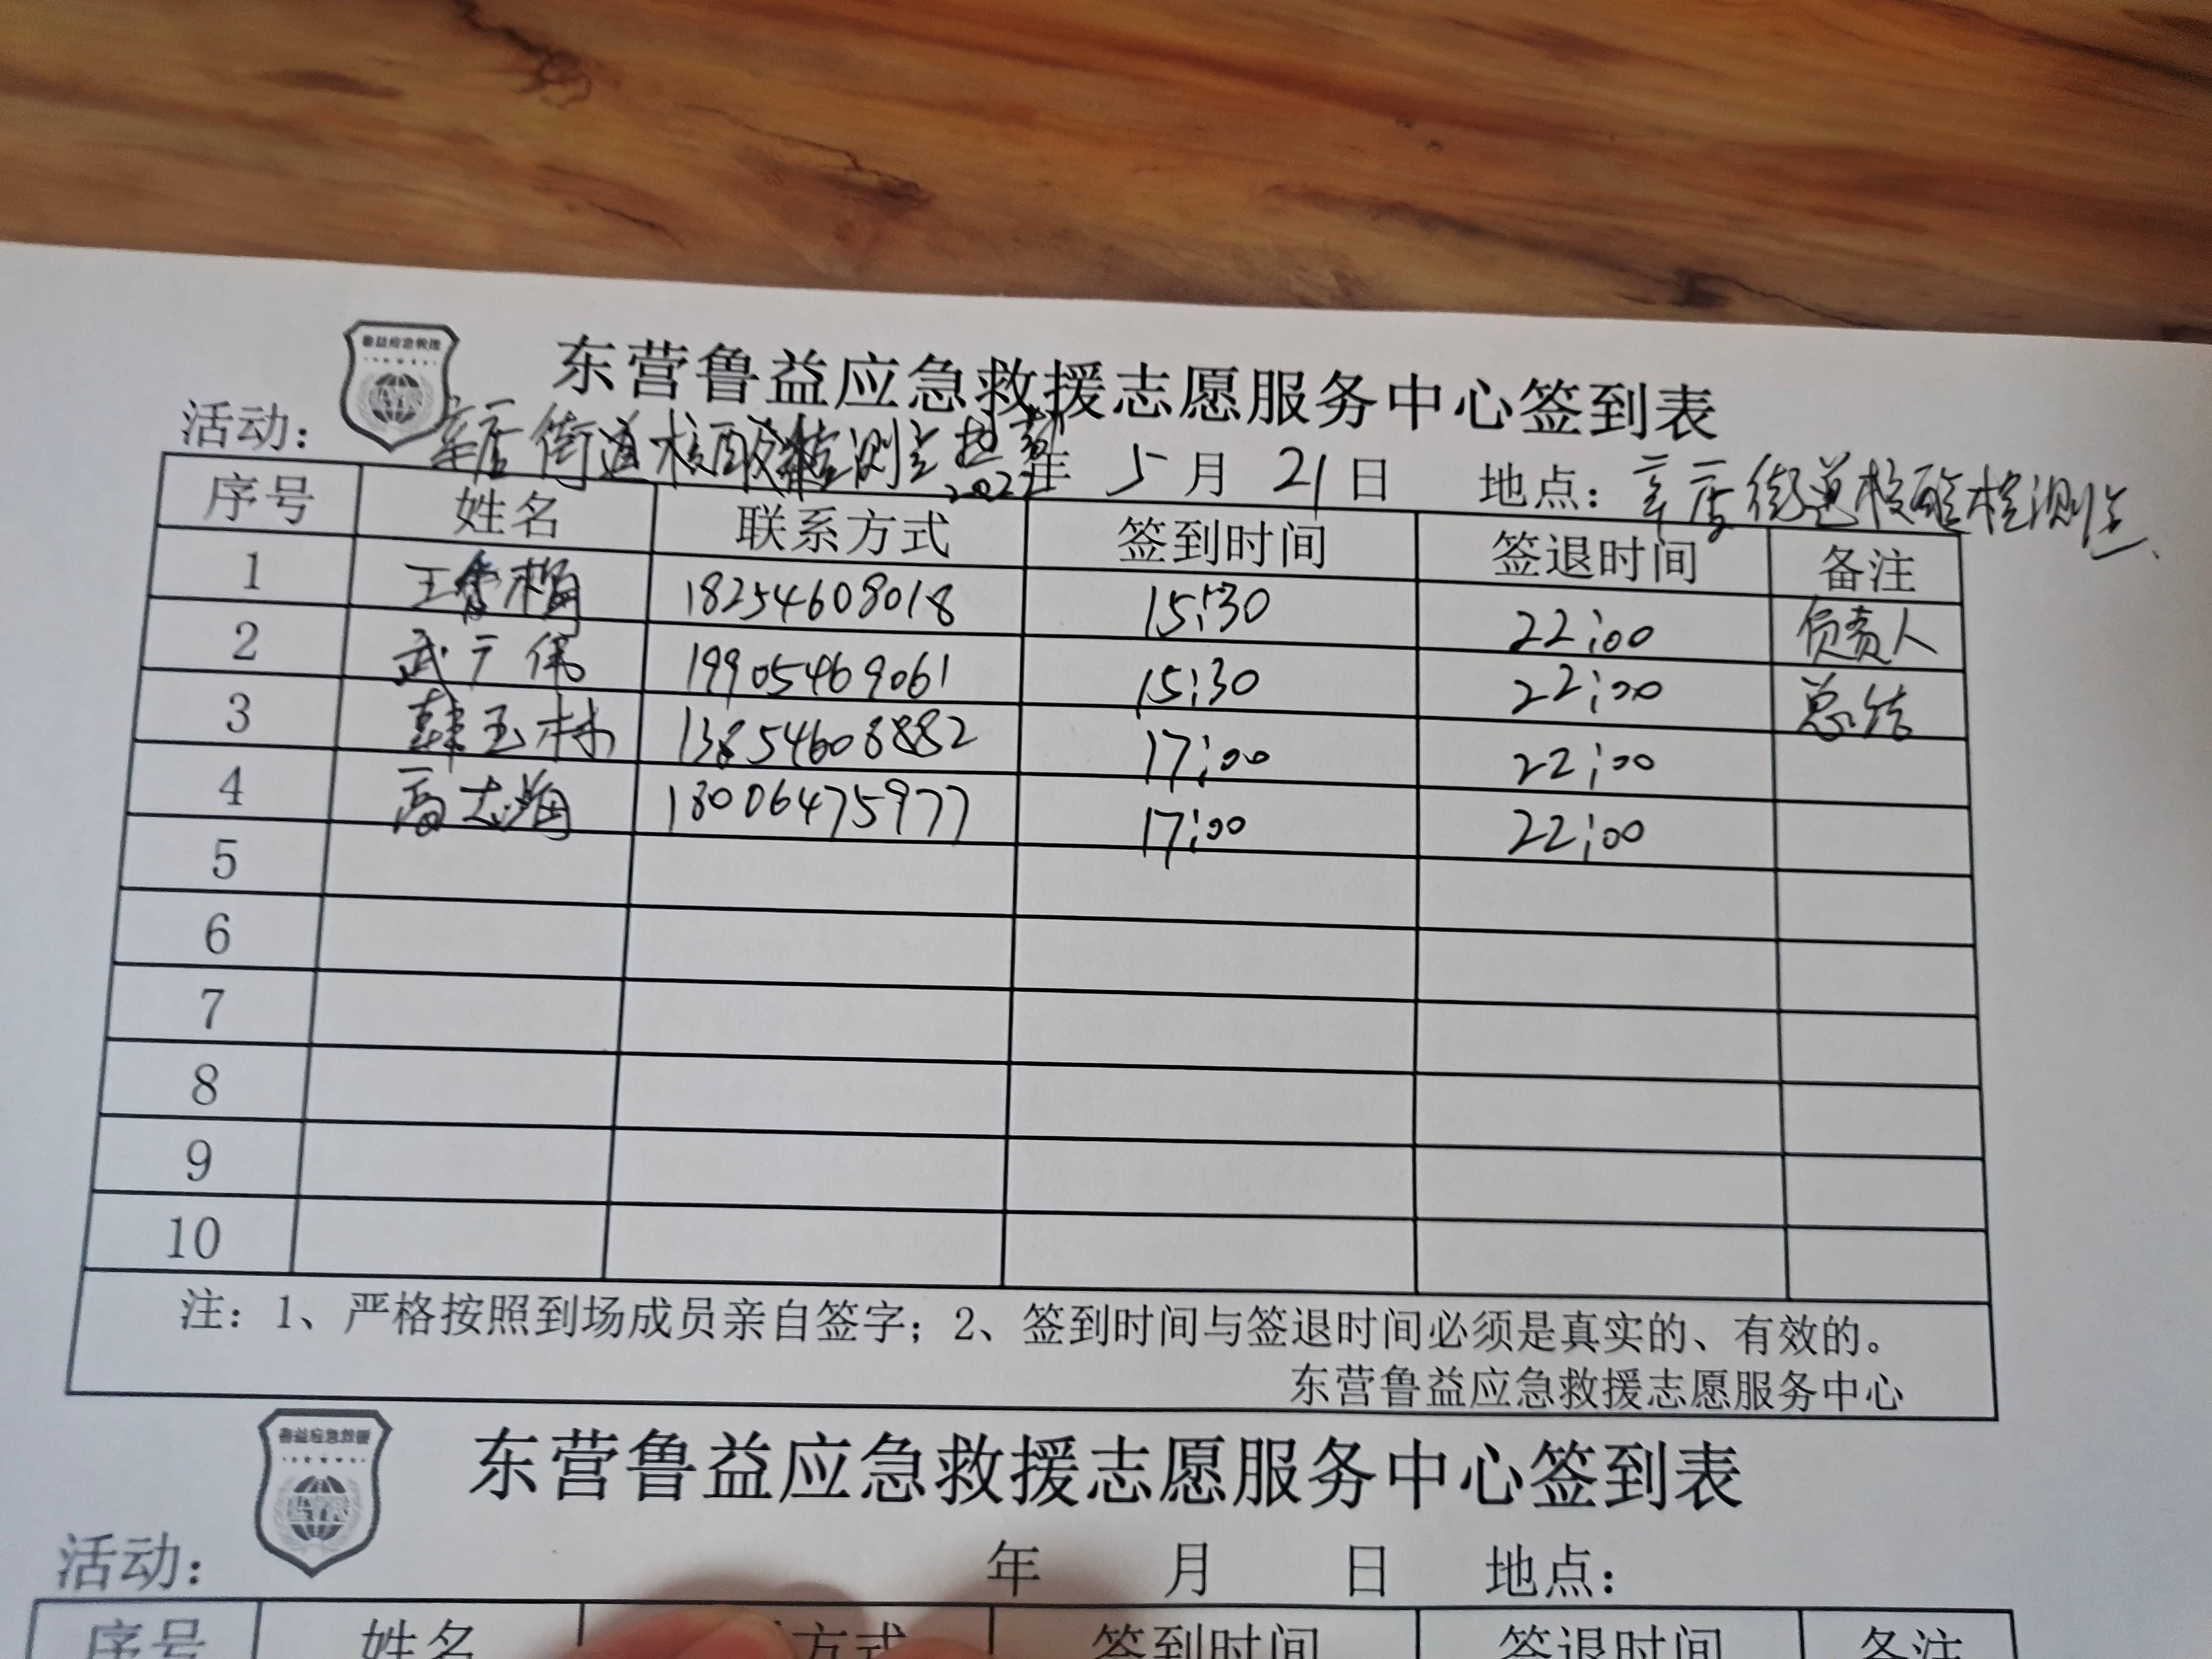 鲁益应急救援
东营鲁益应急救援志愿服务中心签到表
活动：辛店街道核酸检测点执勤 2022年 5月 21日 地点：辛店街道核酸检测点
序号 姓名 联系方式 签到时间 签退时间 备注
1 王雪梅 18254608018 15:30 22:00 负责人
2 武广伟 19905469061 15:30 22:00 总结
3 韩玉林 13854608882 17:00 22:00
4 高志海 18006475977 17:00 22:00
5
6
7
8
9
10
注：1、严格按照到场成员亲自签字；2、签到时间与签退时间必须是真实的、有效的。
东营鲁益应急救援志愿服务中心
鲁益应急救援
东营鲁益应急救援志愿服务中心签到表
活动： 年 月 日 地点：
序号 姓名 方式 签到时间 签退时间 备注